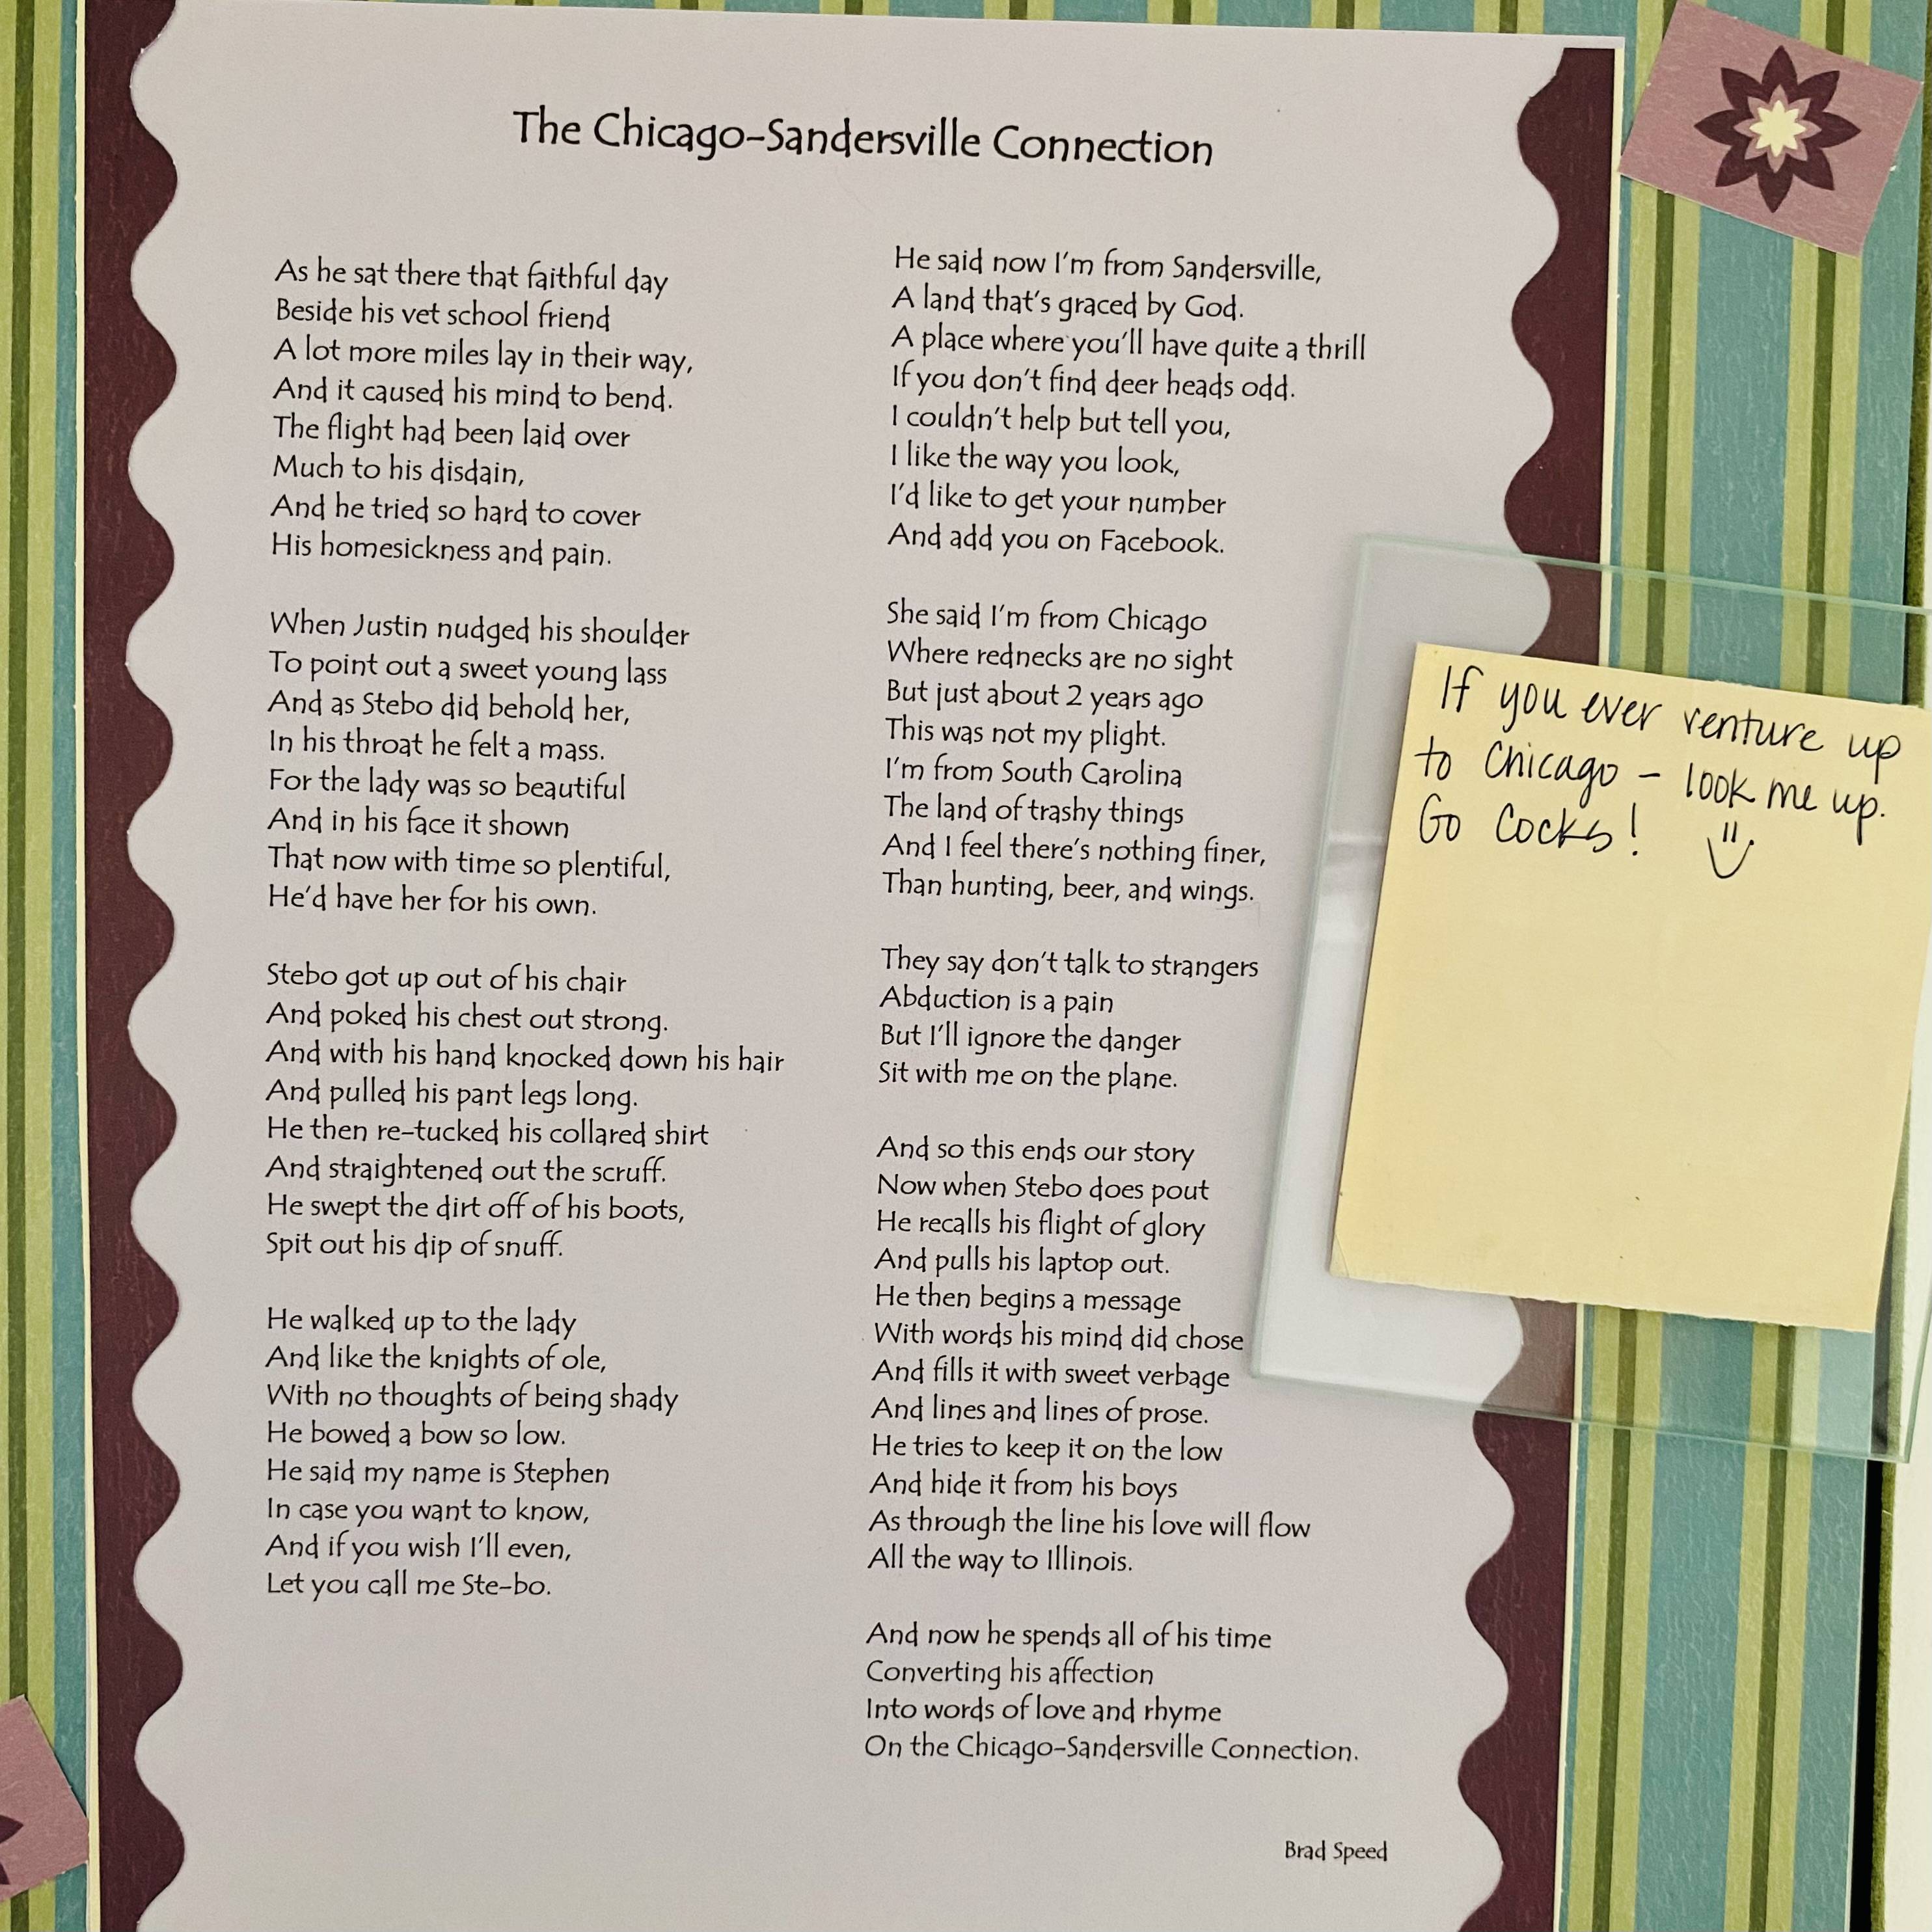 The Chicago-Sandersville Connection
As he sat there that faithful day
Beside his vet school friend
A lot more miles lay in their way,
And it caused his mind to bend.
The flight had been laid over
Much to his disdain,
And he tried so hard to cover
His homesickness and pain.
When Justin nudged his shoulder
To point out a sweet young lass
And as Stebo did behold her,
In his throat he felt a mass.
For the lady was so beautiful
And in his face it shown
That now with time so plentiful,
He'd have her for his own.
Stebo got up out of his chair
And poked his chest out strong.
And with his hand knocked down his hair
And pulled his pant legs long.
He then re-tucked his collared shirt
And straightened out the scruff.
He swept the dirt off of his boots,
Spit out his dip of snuff.
He walked up to the lady
And like the knights of ole,
With no thoughts of being shady
He bowed a bow so low.
He said my name is Stephen
In case you want to know,
And if you wish I'll even,
Let you call me Ste-bo.
He said now I'm from Sandersville,
A land that's graced by God.
A place where you'll have quite a thrill
If you don't find deer heads odd.
I couldn't help but tell you,
I like the way you look,
I'd like to get your number
And add you on Facebook.
She said I'm from Chicago
Where rednecks are no sight
But just about 2 years ago
This was not my plight.
I'm from South Carolina
The land of trashy things
And I feel there's nothing finer,
Than hunting, beer, and wings.
They say don't talk to strangers
Abduction is a pain
But I'll ignore the danger
Sit with me on the plane.
And so this ends our story
Now when Stebo does pout
He recalls his flight of glory
And pulls his laptop out.
He then begins a message
With words his mind did chose
And fills it with sweet verbage
And lines and lines of prose.
He tries to keep it on the low
And hide it from his boys
As through the line his love will flow
All the way to Illinois.
And now he spends all of his time
Converting his affection
Into words of love and rhyme
On the Chicago-Sandersville Connection.
Brad Speed
If you ever venture up
to Chicago - look me up.
Go Cocks!